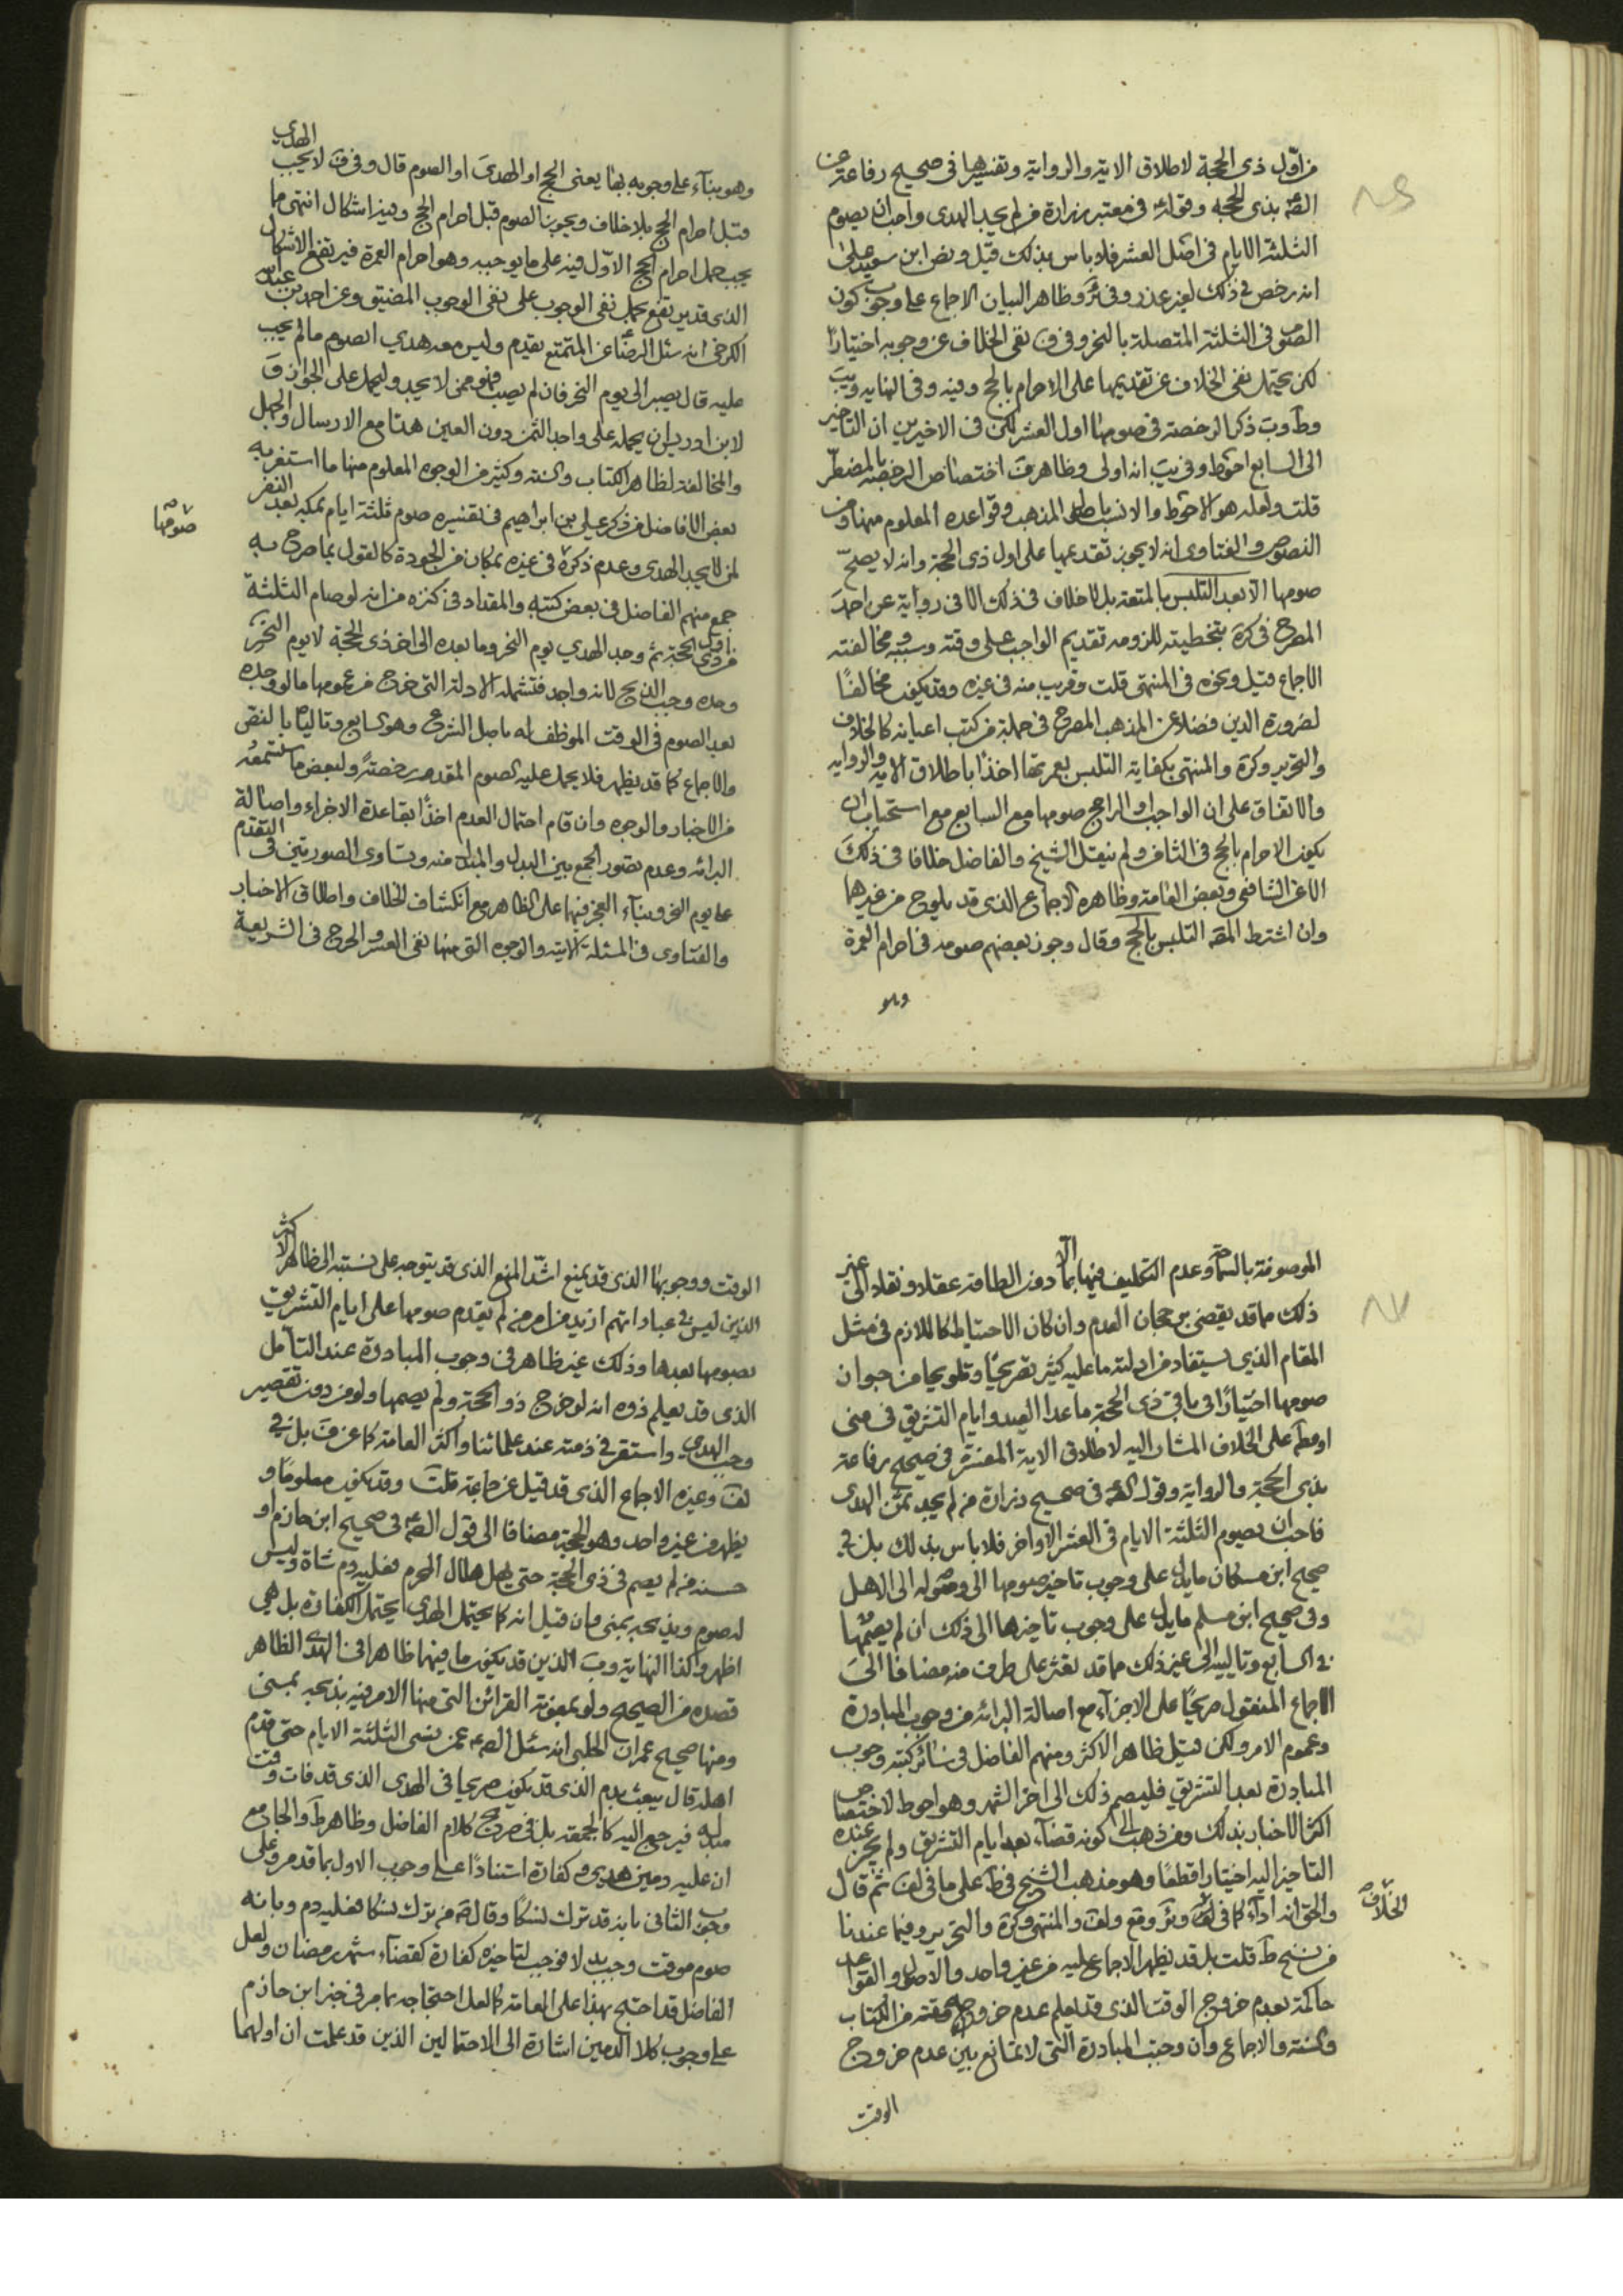 من اول ذى الحجة لاطلاق الاية والرواية وتفسيرها فى صحيح رفاعة عن
الصم بذى الحجة وقوله فى معتبر زرارة من لم يجد الهدى واحب ان يصوم
الثلثة الايام فى اول العشر فلا باس بذلك قيل ونص ابن سعيد على
انه رخص فى ذلك لغير عذر وفى ئر وظاهر البيان الاجماع على وجوب كون
الصوم فى الثلثة المتصلة بالنحر وفى ف نفى الخلاف عن وجوبه اختيارا
لكن يحتمل نفى الخلاف عن تقديمها على الاحرام بالحج وفيه وفى النهايه ويب
وط وب ذكر الرخصة فى صومها اول العشر لكن فى الاخيرين ان التاخير
الى السابع احوط وفى يب انه اولى وظاهر اختصاص الرخصة بالمضطر
قلت ولعله هو الاحوط والانسب باصل المذهب وقواعده المعلوم منها ومن
النصوص والفتاوى انه لا يجوز تقديمها على اول ذى الحجة وانه لا يصح
صومها الا بعد التلبس بالمتعة بل لا خلاف فى ذلك الا فى رواية عن احمد
المصرح فى كرة بتخطيته للزومه تقديم الواجب على وقته وسببه ومخالفته
الاجماع قيل ونحوه فى المنتهى قلت وقريب منه فى غيره وقد يكون مخالفا
لضرورة الدين فضلا عن المذهب المصرح فى جملة من كتب اعيانه كالخلاف
والتحرير وكرة والمنتهى بكفاية التلبس بعمرتها اخذا باطلاق الاية والرواية
والاتفاق على ان الواجب او الراجح صومها مع السابع مع استحباب ان
يكون الاحرام بالحج فى الثامن ولم ينقل الشيخ والفاضل خلافا فى ذلك
الا عن الشافعى وبعض العامة وظاهره الاجماع الذى قد يلوح من غيرهما
وان اشترط المصم التلبس بالحج وقال وجوز بعضهم صومه فى احرام العمرة
وهو
وهو بناء على وجوبه بها يعنى الحج او الهدى او الصوم قال وفى ف لا يجب الهدى
قبل احرام الحج بلا خلاف ويجوز الصوم قبل احرام الحج وفيه اشكال انتهى ما
يجب حمل احرام الحج الاول فيه على ما يوجبه وهو احرام العمرة فيرتفع الاشكال
الذى قد يرتفع بحمل نفى الوجوب على نفى الوجوب المضيق وعن احمد بن عبد الله
الكرخى انه سئل الرضا عن المتمتع يقدم وليس معه هدي ايصوم ما لم يجب
عليه قال يصبر الى يوم النحر فان لم يصب فهو ممن لا يجد وليحمل على الجواز
لابن ادريس ان يحمله على واجد الثمن دون العين هذا مع الارسال والجهل
والمخالفة لظاهر الكتاب والسنة وكثير من الوجوه المعلوم منها ما استغربه
بعض الافاضل من ذكر على بن ابراهيم فى تفسيره صوم ثلثة ايام بمكة بعد النفر
لمن لا يجد الهدى وعدم ذكره فى غيره بمكان من الجودة كالقول بما صرح به
جمع منهم الفاضل فى بعض كتبه والمقداد فى كنزه من انه لو صام الثلثة
من اول ذى الحجة ثم وجد الهدي يوم النحر وما بعده الى اخر ذى الحجة لا يوم النحر
وحده وجب الذبح لانه واجد فتشمله الادلة التى خرج من عمومها ما لو وجده
بعد الصوم فى الوقت الموظف له باصل الشرع وهو السابع وتالياه بالنص
والاجماع كما قد يظهر فلا يحمل عليه الصوم المقدم رخصة ولبعض ما ستسمعه
من الاخبار والوجوه وان قام احتمال العدم اخذا بقاعدة الاجزاء واصالة
البرائه وعدم تصور الجمع بين البدل والمبدل منه وتساوى الصورتين فى التقدم
على يوم النحر وبناء العجز فيها على الظاهر مع انكشاف الخلاف واطلاق الاخبار
والفتاوى فى المسئلة الاتية والوجوه التى منها نفى العسر والحرج فى الشريعة
صومها
الموصوفة بالسماحة وعدم التكليف فيها الا بما دون الطاقة عقلا ونقلا الى غير
ذلك مما قد يقضى برجحان العدم وان كان الاحتياط كاللازم فى مثل
المقام الذي يستفاد من ادلته ما عليه كثير تصريحا وتلويحا من جواز
صومها اختيارا فى باقى ذى الحجة ما عدا العيد وايام التشريق فى منى
او مطلقا على الخلاف المشار اليه لاطلاق الاية المفسرة فى صحيح رفاعة
بذى الحجة والرواية وقول الصم فى صحيح زرارة من لم يجد ثمن الهدى
فاحب ان يصوم الثلثة الايام فى العشر الاواخر فلا باس بذلك بل فى
صحيح ابن مسكان ما يدل على وجوب تاخير صومها الى وصوله الى الاهل
وفى صحيح ابن مسلم ما يدل على وجوب تاخيرها الى ذلك ان لم يصمها
فى السابع وتالييه الى غير ذلك مما قد نعثر على طرف منه مضافا الى
الاجماع المنقول صريحا على الاجزاء مع اصالة البرائه من وجوب المبادرة
وعموم الامر ولكن قيل ظاهر الاكثر ومنهم الفاضل فى سائر كتبه وجوب
المبادرة بعد التشريق فليصم ذلك الى اخر الشهر وهو احوط لاختصاص
اكثر الاخبار بذلك ومن ذهب الى كونه قضاء بعد ايام التشريق ولم يجز عنده
التاخير اليه اختيارا قطعا وهو مذهب الشيخ فى ط على ما فى لف ثم قال
والحق انه اداء كما فى الخلاف وئر وقع ولف والمنتهى وكرة والتحرير وفيما عندنا
من نسخ ط قلت بل قد يظهر الاجماع عليه من غير واحد والاصول والقواعد
حاكمة بعدم خروج الوقت الذى قد يعلم عدم خروجه من الكتاب
والسنة والاجماع وان وجبت المبادرة التى لا تمانع بين عدم خروج
الخلاف
الوقت
الوقت ووجوبها الذى قد يمنع اشد المنع الذى قد يتوجه على نسبته الى ظاهر الاكثر
الذين ليس فى عباراتهم ازيد من امر من لم يقدم صومها على ايام التشريق
بصومها بعدها وذلك غير ظاهر فى وجوب المبادرة عند التامل
الذى قد يعلم ذوه انه لو خرج ذو الحجة ولم يصمها ولو من دون تقصير
وجب الهدي واستقر فى ذمته عند علمائنا واكثر العامة كما عن ف بل فى
لف وغيره الاجماع الذى قد قيل عن جماعة قلت وقد يكون معلوما و
يظهر من غير واحد وهو الحجة مضافا الى قول الصم فى صحيح ابن حازم او
حسنه من لم يصم فى ذى الحجة حتى يهل هلال المحرم فعليه دم شاة وليس
له صوم ويذبحه بمنى وان قيل انه كما يحتمل الهدى يحتمل الكفارة بل هى
اظهر وكذا النهاية ويب الذين قد يكون ما فيهما ظاهرا فى الهدى الظاهر
قصده من الصحيح ولو بمعونة القرائن التى منها الامر فيه بذبحه بمنى
ومنها صحيح عمران الحلبى انه سئل الصم عمن نسى الثلثة الايام حتى قدم
اهله قال يبعث بدم الذى قد يكون صريحا فى الهدى الذى قد فات وقت
بدله فيرجع اليه كالجمعة بل فى صريح كلام الفاضل وظاهر ط والجامع
ان عليه دمين هدي وكفارة استنادا على وجوب الاول بما قدم وعلى
وجوب الثانى بانه قد ترك نسكا وقال من ترك نسكا فعليه دم وبانه
صوم موقت وجب بدلا فوجب لتاخيره كفارة كقضاء شهر رمضان ولعل
الفاضل قد احتج بهذا على العامة كالعل احتجاجه بما مر فى خبر ابن حازم
على وجوب كلا الدمين اشارة الى الاحتمالين الذين قد علمت ان اولهما